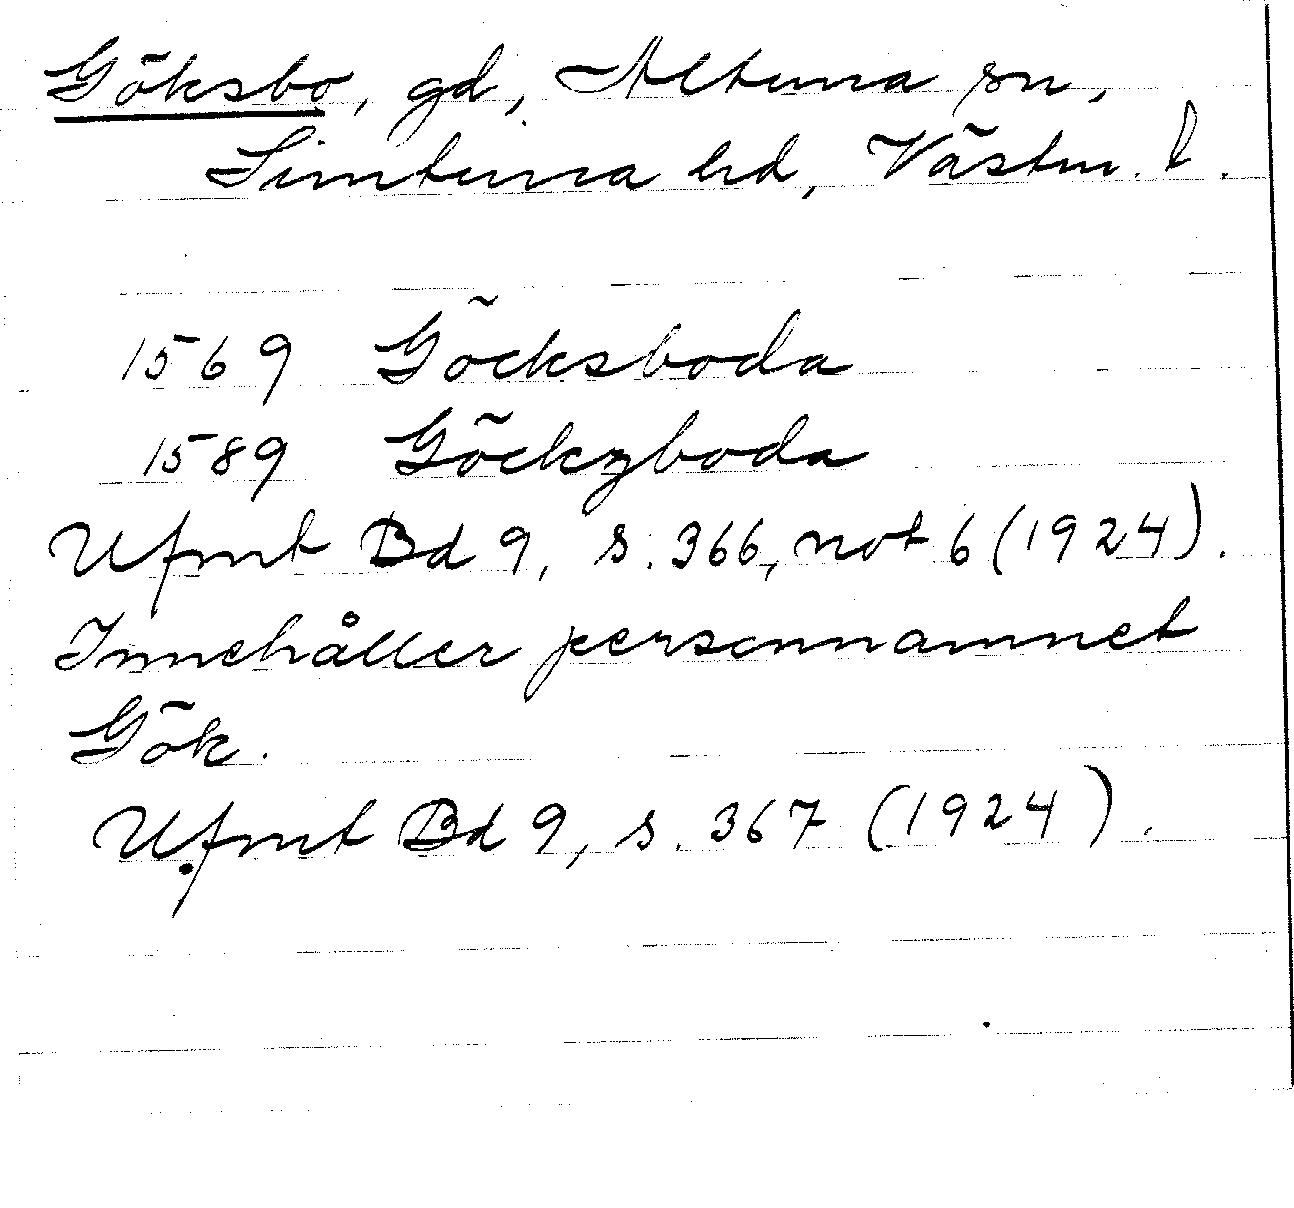 Göksbo, gd, Altuna sn,
Simtuna hd, Västm. l.
1569 Göcksboda
1589 Göckzboda
Ufmt Bd 9, s. 366, not 6 (1924).
Innehåller personnamnet
Gök.
Ufmt Bd 9, s. 367 (1924).